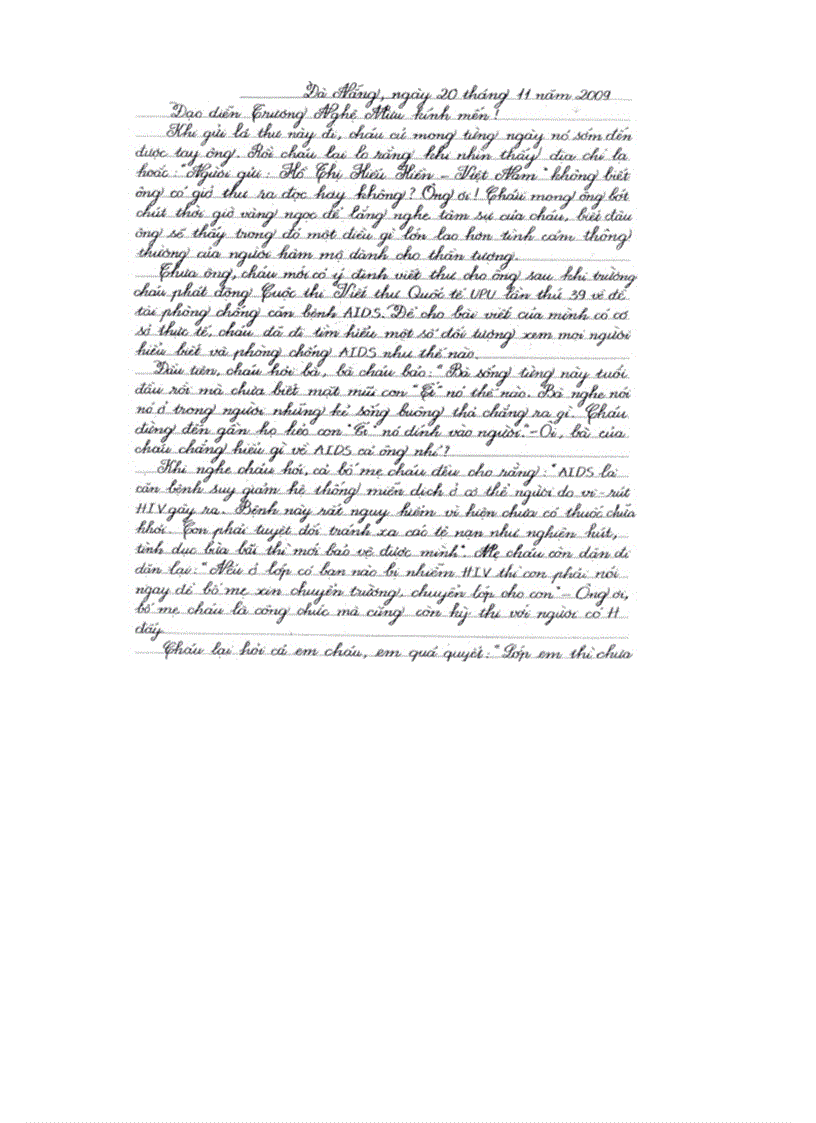 Đà Nẵng, ngày 20 tháng 11 năm 2009
Đạo diễn Trương Nghệ Mưu kính mến!
Khi gửi lá thư này đi, cháu cứ mong từng ngày nó sớm đến
được tay ông. Rồi cháu lại lo rằng khi nhìn thấy địa chỉ lạ
hoắc: "Người gửi: Hồ Thị Hiếu Hiền - Việt Nam" không biết
ông có giở thư ra đọc hay không? Ông ơi! Cháu mong ông bớt
chút thời giờ vàng ngọc để lắng nghe tâm sự của cháu, biết đâu
ông sẽ thấy trong đó một điều gì lớn lao hơn tình cảm thông
thường của người hâm mộ dành cho thần tượng.
Thưa ông, cháu mới có ý định viết thư cho ông sau khi trường
cháu phát động Cuộc thi "Viết thư Quốc tế UPU lần thứ 39 về đề
tài phòng chống căn bệnh AIDS." Để cho bài viết của mình có cơ
sở thực tế, cháu đã đi tìm hiểu một số đối tượng xem mọi người
hiểu biết và phòng chống AIDS như thế nào.
Đầu tiên, cháu hỏi bà, bà cháu bảo: "Bà sống từng này tuổi
đầu rồi mà chưa biết mặt mũi con "Ết" nó thế nào. Bà nghe nói
nó ở trong người những kẻ sống buông thả chẳng ra gì. Cháu
đừng đến gần họ kẻo con "Ết" nó dính vào người." - Ôi, bà của
cháu chẳng hiểu gì về AIDS cả ông nhỉ?
Khi nghe cháu hỏi, cả bố mẹ cháu đều cho rằng: "AIDS là
căn bệnh suy giảm hệ thống miễn dịch ở cơ thể người do vi-rút
HIV gây ra. Bệnh này rất nguy hiểm vì hiện chưa có thuốc chữa
khỏi. Con phải tuyệt đối tránh xa các tệ nạn như nghiện hút,
tình dục bừa bãi thì mới bảo vệ được mình". Mẹ cháu còn dặn đi
dặn lại: "Nếu ở lớp có bạn nào bị nhiễm HIV thì con phải nói
ngay để bố mẹ xin chuyển trường, chuyển lớp cho con" - Ông ơi,
bố mẹ cháu là công chức mà cũng còn kỳ thị với người có H
đấy
Cháu lại hỏi cả em cháu, em quả quyết: "Lớp em thì chưa